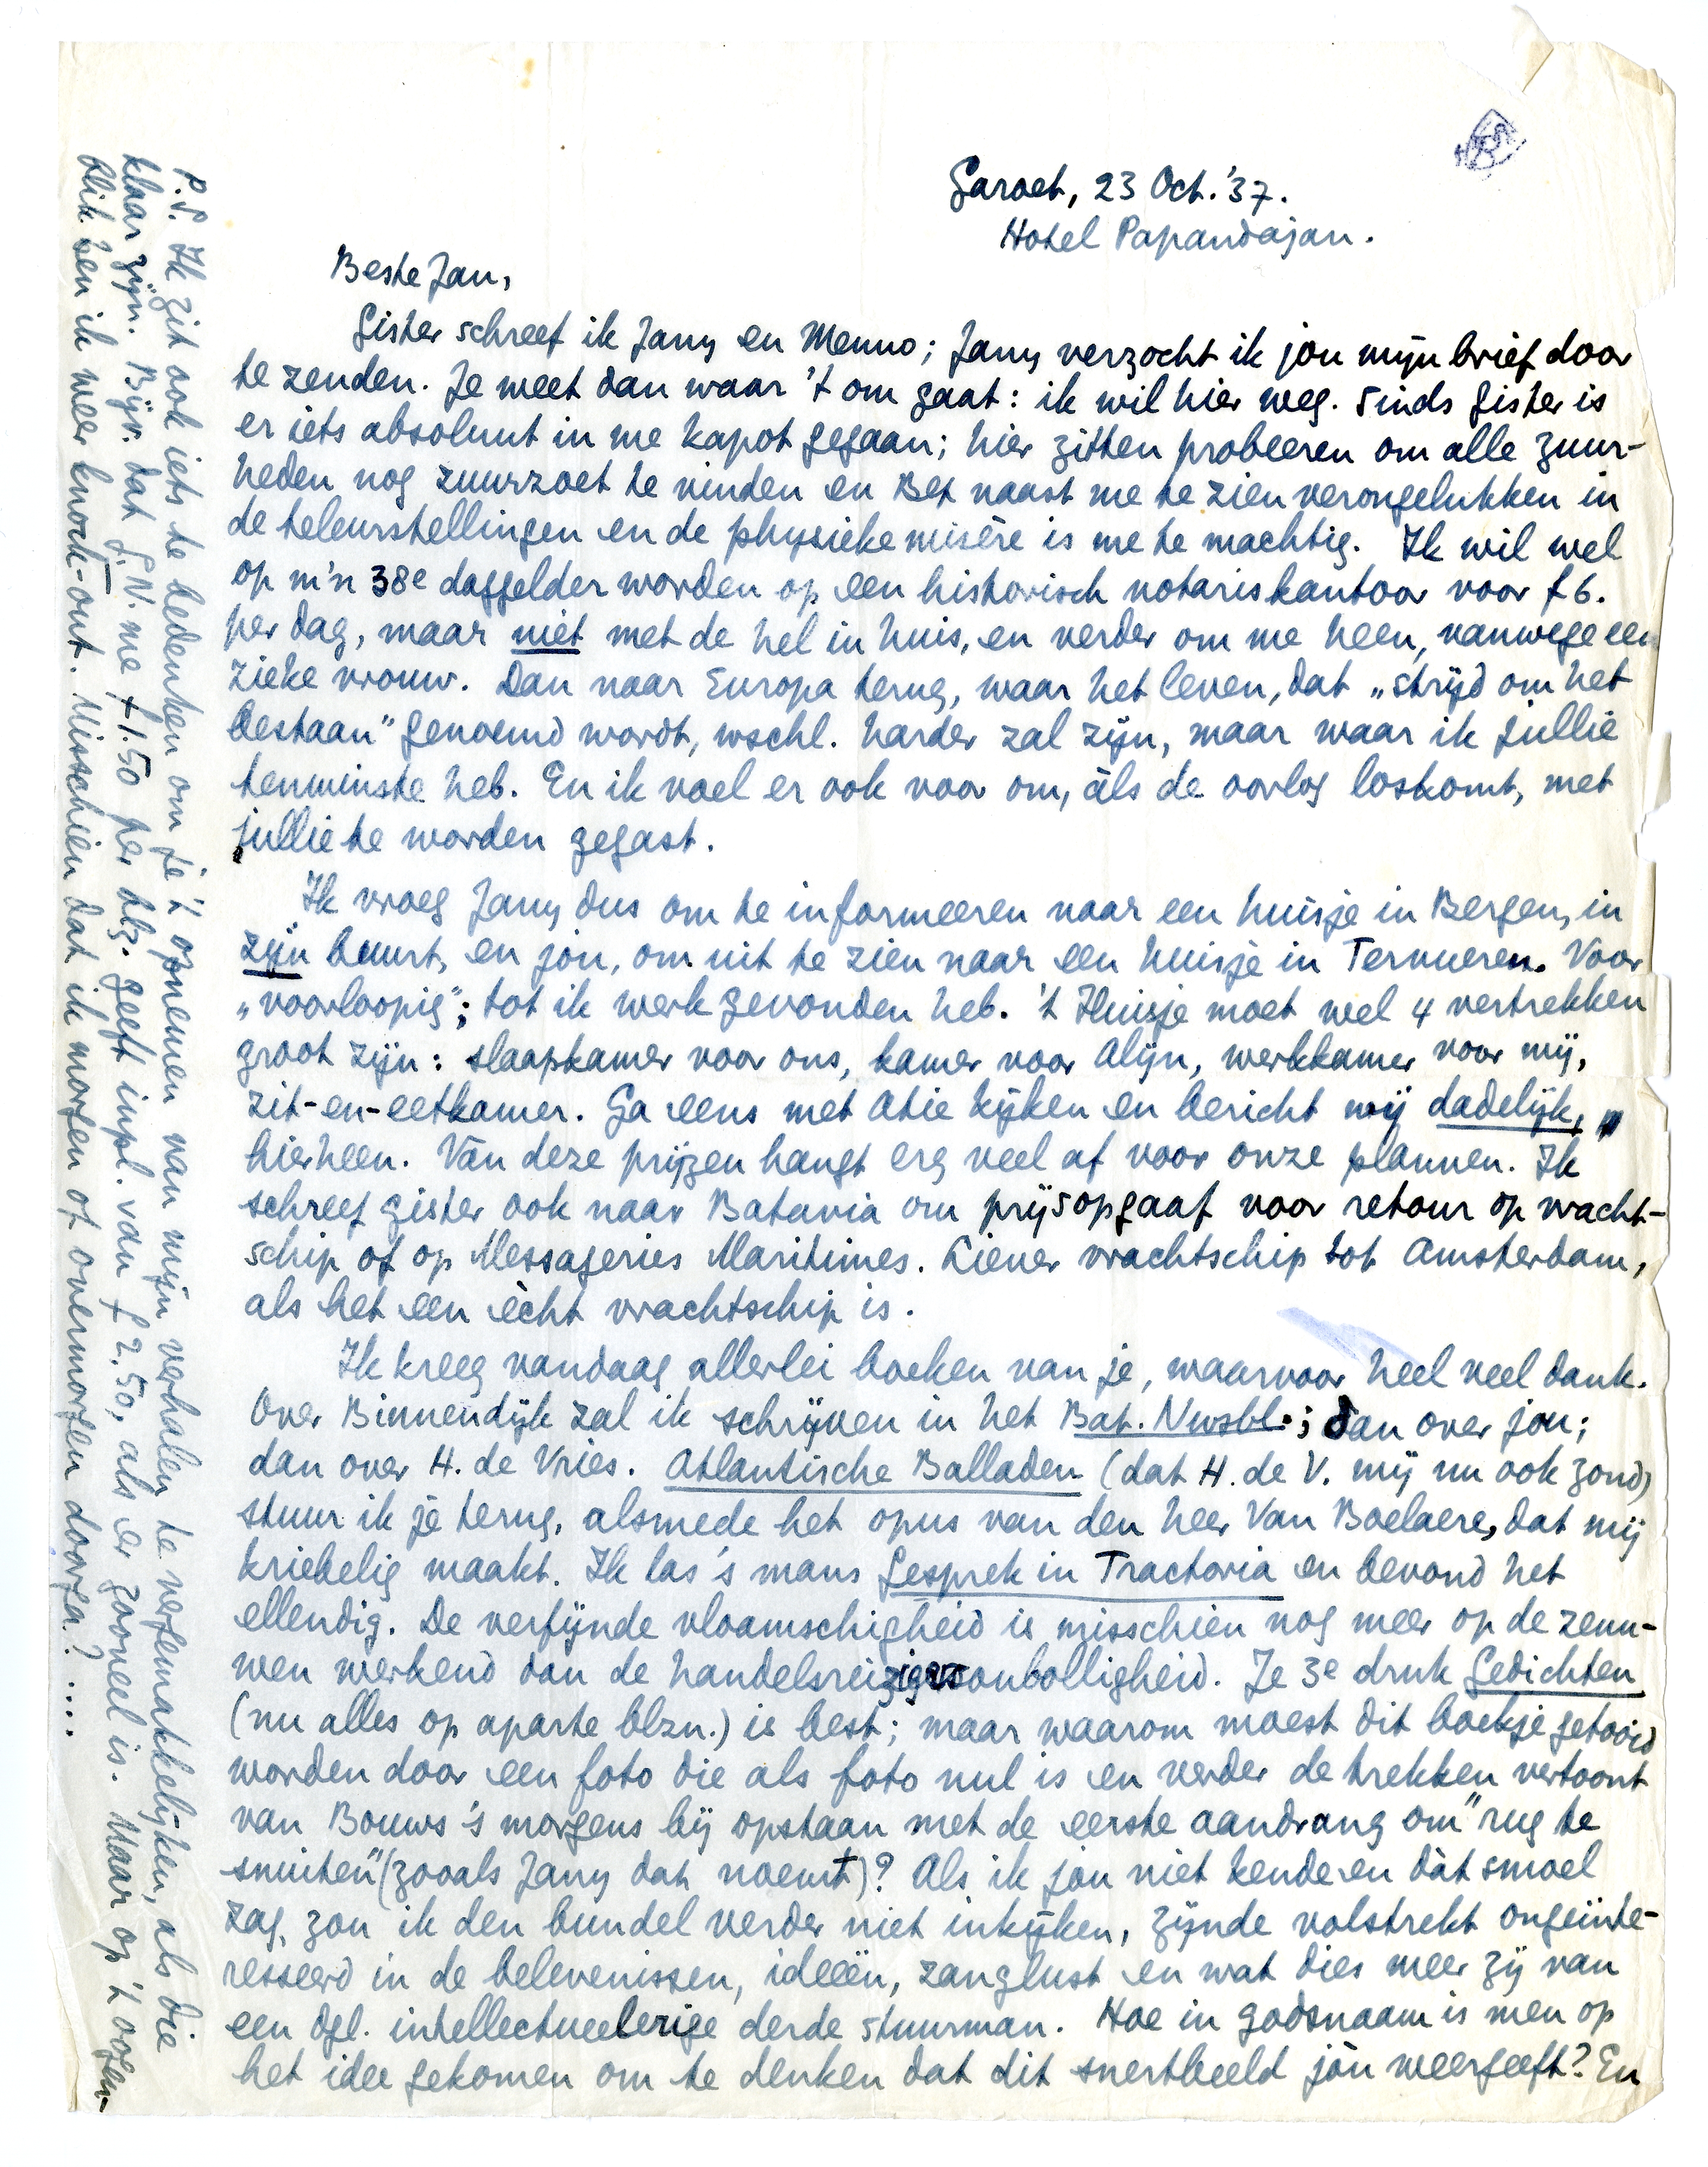 Garoet, 23 Oct. '37.
Hotel Papandajan.
Beste Jan,
Gister schreef ik Jany en Menno; Jany verzocht ik jou mijn brief door
te zenden. Je weet dan waar 't om gaat: ik wil hier weg. Sinds gister is
er iets absoluut in me kapot gegaan; hier zitten probeeren om alle zuur-
heden nog zuurzoet te vinden en Bep naast me te zien verongelukken in
de teleurstellingen en de physieke misère is me te machtig. Ik wil wel
op m'n 38e daggelder worden op een historisch notariskantoor voor f 6.
per dag, maar niet met de hel in huis, en verder om me heen, vanwege een
zieke vrouw. Dan naar Europa terug, waar het leven, dat „strijd om het
bestaan" genoemd wordt, wschl. harder zal zijn, maar waar ik jullie
tenminste heb. En ik voel er ook voor om, àls de oorlog loskomt, met
jullie te worden gegast.
Ik vroeg Jany dus om te informeeren naar een huisje in Bergen, in
zijn buurt, en jòu, om uit te zien naar een huisje in Tervueren. Voor
„voorloopig"; tot ik werk gevonden heb. 't Huisje moet wel 4 vertrekken
groot zijn: slaapkamer voor ons, kamer voor Alijn, werkkamer voor mij,
zit-en-eetkamer. Ga eens met Atie kijken en bericht mij dadelijk,
hierheen. Van deze prijzen hangt erg veel af voor onze plannen. Ik
schreef gister ook naar Batavia om prijsopgaaf voor retour op vracht-
schip of op Messageries Maritimes. Liever vrachtschip tot Amsterdam,
als het een ècht vrachtschip is.
Ik kreeg vandaag allerlei boeken van je, waarvoor heel veel dank.
Over Binnendijk zal ik schrijven in het Bat. Nwsbl.; dan over jou;
dan over H. de Vries. Atlantische Balladen (dat H. de V. mij nu ook zond)
stuur ik je terug, alsmede het opus van den heer Van Boelaere, dat mij
kriebelig maakt. Ik las 's mans Gesprek in Tractoria en bevond het
ellendig. De verfijnde vlaamschigheid is misschien nog meer op de zenu-
wen werkend dan de handelsreizigersonbolligheid. Je 3e druk Gedichten
(nu alles op aparte blzn.) is best; maar waarom moest dit boekje getooid
worden door een foto die als foto nul is en verder de trekken vertoont
van Bouws 's morgens bij opstaan met de eerste aandrang om "rug te
snuiten" (zooals Jany dat noemt)? Als ik jòu niet kende en dàt smoel
zag, zou ik den bundel verder niet inkijken, zijnde volstrekt ongeïnte-
resseerd in de belevenissen, ideeën, zanglust en wat dies meer zij van
een dgl. intellectueelerige derde stuurman. Hoe in godsnaam is men op
het idee gekomen om te denken dat dit snertbeeld jòu weergeeft? En
P.S. Ik zit ook iets te bedenken om je 't opnemen van mijn verhalen te vergemakkelijken, als die
klaar zijn. Bijv. dat G.N. me f 1.50 per blz. geeft inpl. van f 2.50, als er zooveel is. Maar op 't oogen-
blik ben ik weer knock-out. Misschien dat ik morgen of overmorgen doorga?....